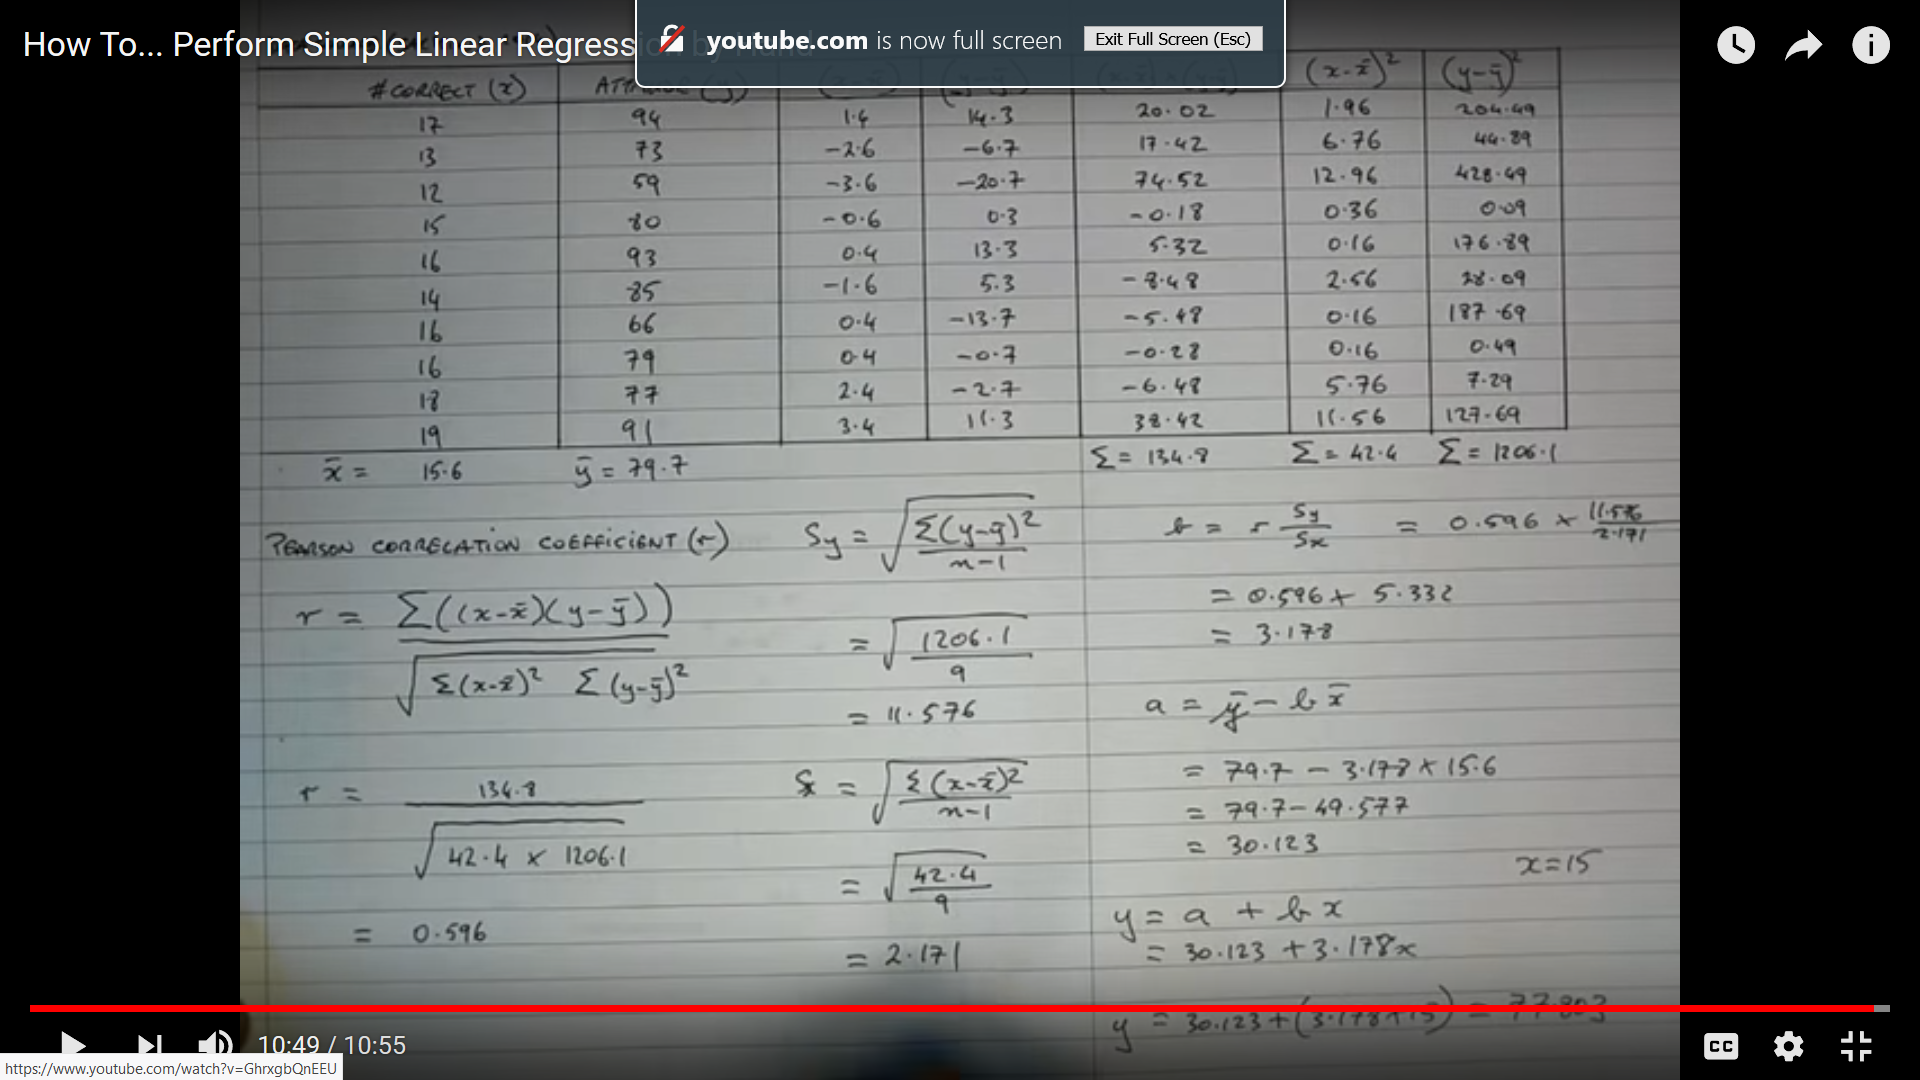 How To... Perform Simple Linear Regressi
youtube.com is now full screen Exit Full Screen (Esc)
#CORRECT (x) (x-x̄)² (y-ȳ)²
17 94 1.4 14.3 20.02 1.96 204.49
13 73 -2.6 -6.7 17.42 6.76 44.89
12 59 -3.6 -20.7 74.52 12.96 428.49
15 80 -0.6 0.3 -0.18 0.36 0.09
16 93 0.4 13.3 5.32 0.16 176.89
14 85 -1.6 5.3 -8.48 2.56 28.09
16 66 0.4 -13.7 -5.48 0.16 187.69
16 79 0.4 -0.7 -0.28 0.16 0.49
18 77 2.4 -2.7 -6.48 5.76 7.29
19 91 3.4 11.3 38.42 11.56 127.69
x̄ = 15.6 ȳ = 79.7 Σ = 134.8 Σ = 42.4 Σ = 1206.1
PEARSON CORRELATION COEFFICIENT (r)
r = Σ((x-x̄)(y-ȳ)) / √Σ(x-x̄)² Σ(y-ȳ)²
r = 134.8 / √42.4 x 1206.1
= 0.596
Sy = √Σ(y-ȳ)² / n-1
= √1206.1 / 9
= 11.576
Sx = √Σ(x-x̄)² / n-1
= √42.4 / 9
= 2.171
b = r Sy/Sx = 0.596 x 11.576/2.171
= 0.596 x 5.332
= 3.178
a = ȳ - b x̄
= 79.7 - 3.178 x 15.6
= 79.7 - 49.577
= 30.123
x = 15
y = a + bx
= 30.123 + 3.178x
y = 30.123 + (3.178 x 15) = 77.803
10:49 / 10:55
CC
https://www.youtube.com/watch?v=GhrxgbQnEEU